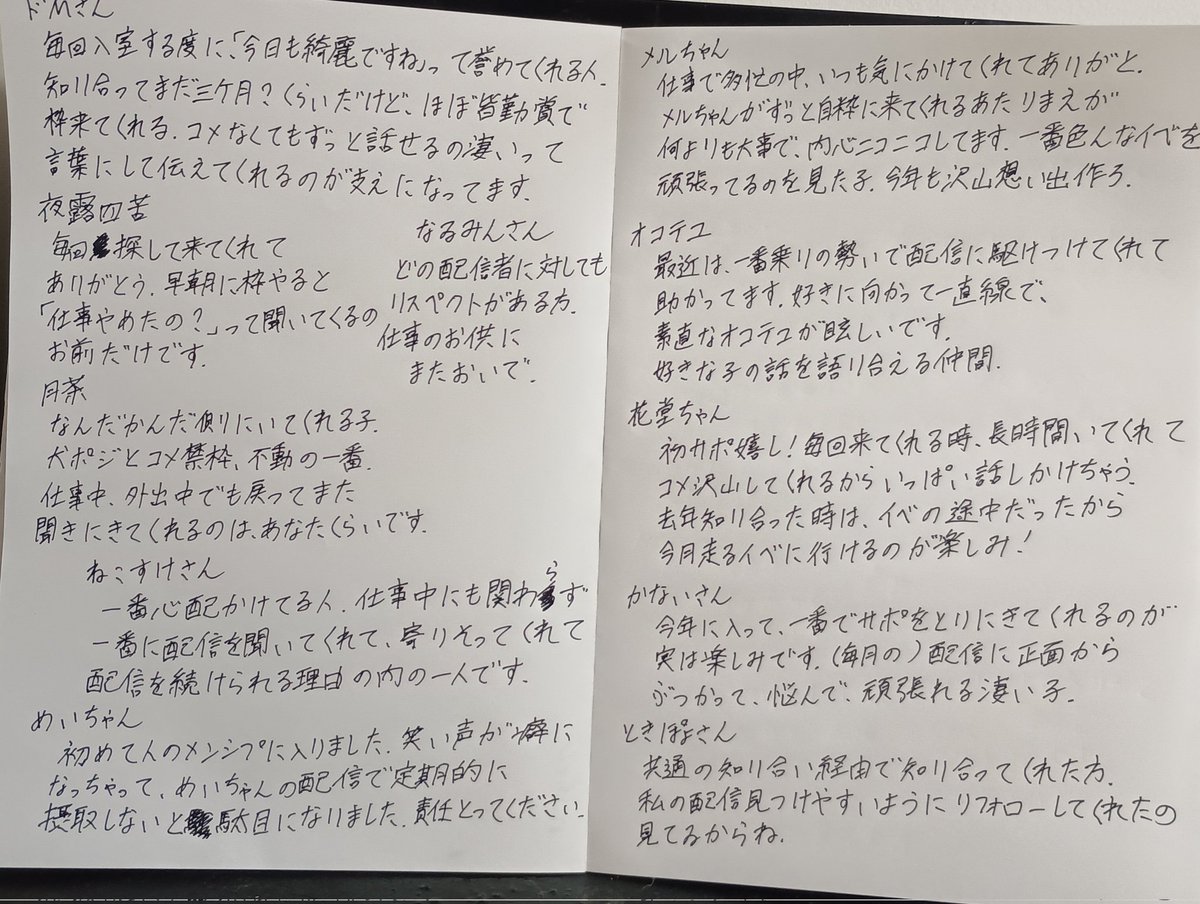 ドMさん
毎回入室する度に、「今日も綺麗ですね」って誉めてくれる人.
知り合ってまだ三ケ月？くらいだけど、ほぼ皆勤賞で
枠来てくれる. コメなくてもずっと話せるの凄いって
言葉にして伝えてくれるのが支えになってます.
夜露四苦
毎回探して来てくれて
ありがとう. 早朝に枠やると
「仕事やめたの？」って聞いてくるの
お前だけです.
なるみんさん
どの配信者に対しても
リスペクトがある方.
仕事のお供に
またおいで.
月茶
なんだかんだ側にいてくれる子.
犬ポジとコメ禁枠、不動の一番.
仕事中、外出中でも戻ってまた
聞きにきてくれるのは、あなたくらいです.
ねこすけさん
一番心配かけてる人. 仕事中にも関わらず
一番に配信を聞いてくれて、寄りそってくれて
配信を続けられる理由の内の一人です.
めいちゃん
初めて人のメンシプに入りました. 笑い声が癖に
なっちゃって、めいちゃんの配信で定期的に
摂取しないと駄目になりました. 責任とってください.
メルちゃん
仕事で多忙の中、いつも気にかけてくれてありがと.
メルちゃんがずっと自枠に来てくれるあたりまえが
何よりも大事で、内心ニコニコしてます. 一番色んなイベを
頑張ってるのを見た子. 今年も沢山想い出作ろ.
オコテユ
最近は、一番乗りの勢いで配信に駆けつけてくれて
助かってます. 好きに向かって一直線で、
素直なオコテユが眩しいです.
好きな子の話を語り合える仲間.
花堂ちゃん
初サポ嬉し！毎回来てくれる時、長時間いてくれて
コメ沢山してくれるからいっぱい話しかけちゃう.
去年知り合った時は、イベの途中だったから
今月走るイベに行けるのが楽しみ！
かないさん
今年に入って、一番でサポをとりにきてくれるのが
実は楽しみです. (毎月の) 配信に正面から
ぶつかって、悩んで、頑張れる凄い子.
ときぽよさん
共通の知り合い経由で知り合ってくれた方.
私の配信見つけやすいようにリフォローしてくれたの
見てるからね.